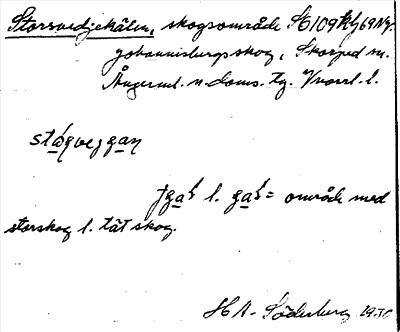 Storsvedjekälen, skogsområde S6109 69Ny.
Johannisburgs skog, Skorped sn.
Ångerml. n. doms. tg. Västl. l.
stágveggan
gaʃ l. gaʃ = område med
storskog l. tät skog.
HA. Söderberg 1930